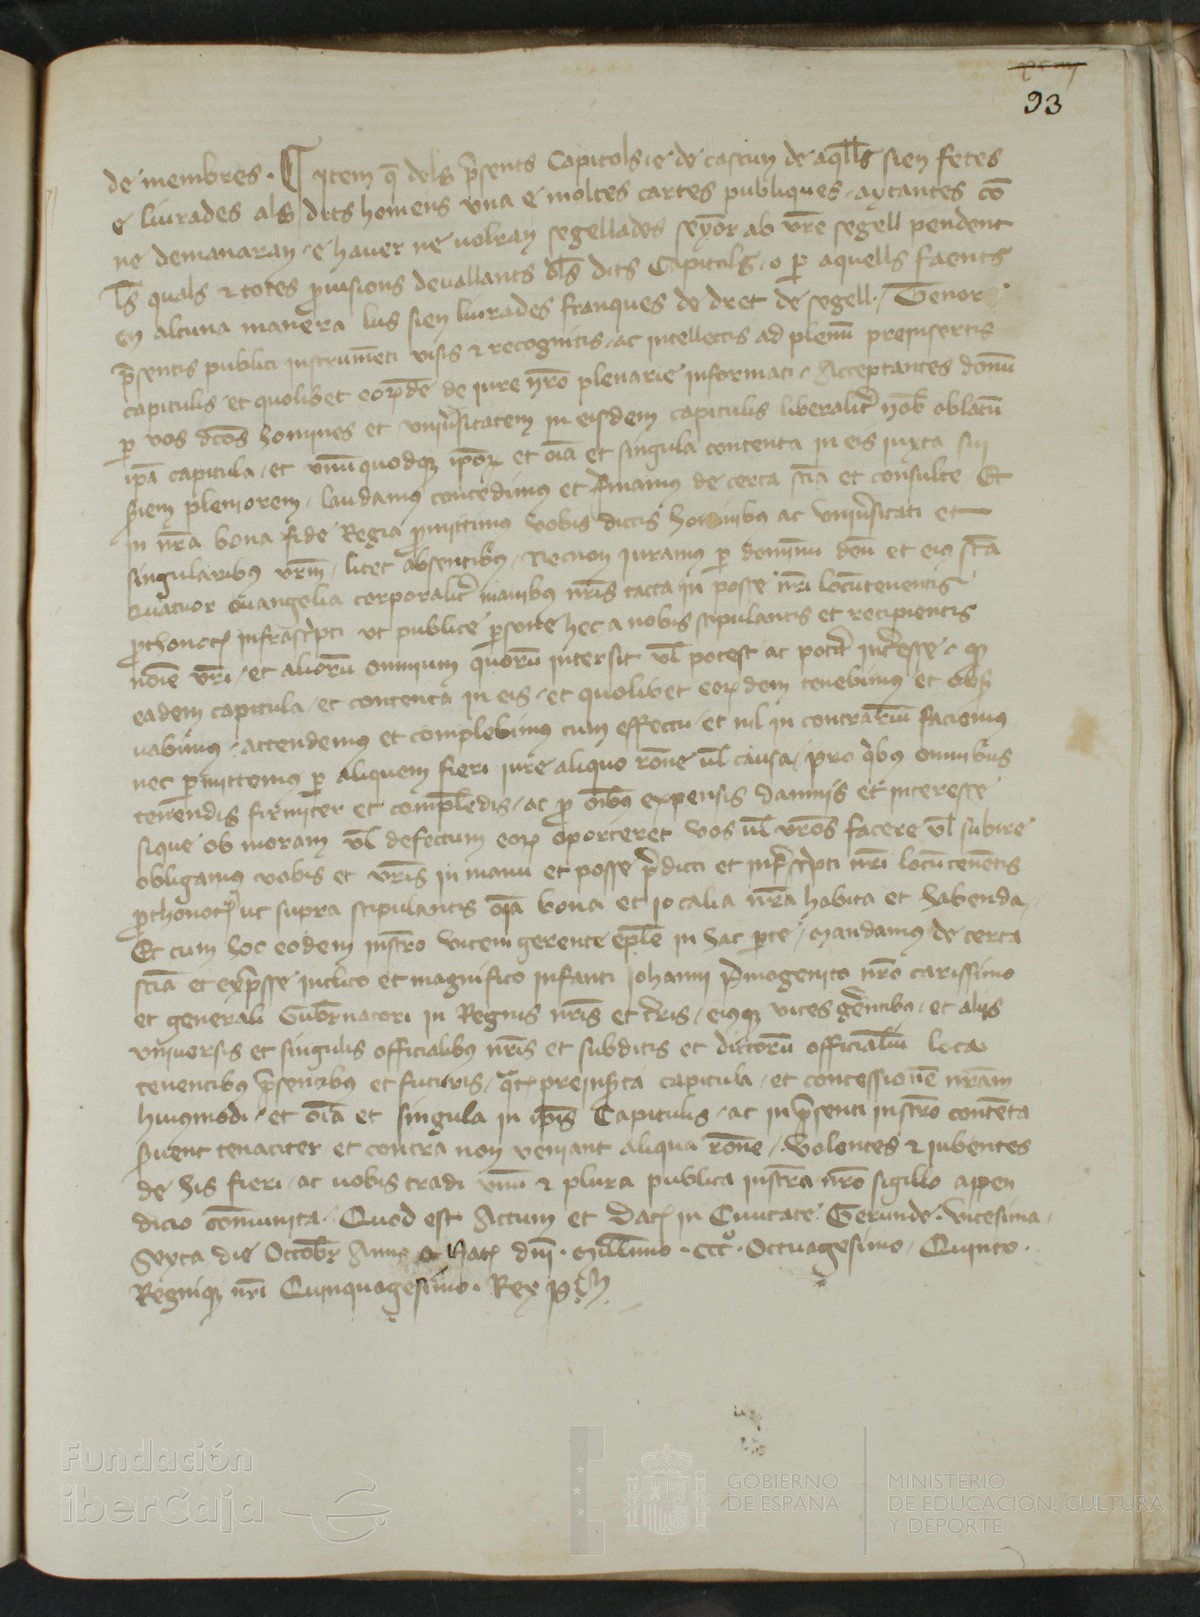 93
de membres · ¶ Item q̄ dels p̄sents Capitols e de cascun de aq̄lls sien fetes
e liurades als dits homens vna e moltes cartes publiques, aytantes cō
ne demanaran e hauer ne volran segellades seyor ab vr̄e segell pendent
l̄s quals & totes p̄uisions deuallants dl̄s dits Capitols, o p̄ aquells faents
en alcuna manera lus sien liurades franques de dret de segell · Tenore
p̄sentis publici instrumēti visis & recognitis, ac intellectis ad plenū preinsertis
capitulis et quolibet eorūdē de iure nr̄o plenarie informati, Acceptantes donū
p̄ vos dc̄os homines et vniu̓sitatem in eisdem capitulis liberalit̓ nob̄ oblatū
ip̄a capitula, et vnūquodq ip̄or et oīa et singula contenta in eis iuxta sui
s̄iem pleniorem, laudamus concedimus et firmamus de certa sc̄ia et consulte Et
in nr̄a bona fide Regia p̄mittimus vobis dictis hominibus ac vniu̓sitati et
singularibus vr̄m, licet absentibus, Necnon iuramus p̄ dominū deū et eius sc̄a
Quatuor euangelia corporalit̓ manibus nr̄is tacta in posse nr̄i locūtenentis
p̄thonot infrasc̓pti vt publice p̄sone hec a nobis stipulantis et recipientis
noīe vr̄i, et aliorū omnium quorū intersit vl̄ potest ac pot̓it int̓esse, q
eadem capitula, et contenta in eis, et quolibet eordem tenebimus et obs̓
uabimus, attendemus et complebimus cum effectu, et nil in contrariū faciemus
nec p̄mittemus p̄ aliquem fieri iure aliquo rōne vl̄ causa, pro q̓bus omnibus
tenendis firmiter et complēdis, ac p̄ oībus expensis dampnis et interesse
sique ob moram vl̄ defectum eor oporteret vos vl̄ vr̄os facere vl̄ subire
obligamus vobis et vr̄is in manu et posse p̄dicti et infrasc̓pti nr̄i locūtenētis
p̄thonot ut supra stipulantis oīa bona et iocalia nr̄a habita et habenda,
Et cum hoc eodem instr̄o vicem gerente ep̄le in hac p̄te, Mandamus de certa
sc̄ia et exp̄sse inclito et magnifico infanti Iohanni p̓mogenito nr̄o carissimo
et generali Gub̓natori in Regnis nr̄is et t̓ris, eiusq vices ger̄ntibus, et alijs
vniuersis et singulis officialibus nr̄is et subditis et dictorū officialiū loca
tenentibus p̄sentibus et futuris, q̄t preins̓ta capitula, et concessionē nr̄am
huiusmodi, et oīa et singula in ip̄is Capitulis, ac in p̄senti instr̄o contēta
s̓uent tenaciter et contra non veniant aliqua rōne, Volentes & iubentes
de his fieri, ac vobis tradi vnū & plura publica instr̄a nr̄o sigillo appen
dicio cōmunita, Quod est Actum et Dat in Ciuitate Gerunde · Vicesima
Sexta die Octobr̄ Anno a Nat dn̄i · Mill̄imo · ccc° · Octuagesimo, Quinto ·
Regniq nr̄i Quinquagesimo · Rex P
Fundación
iberCaja
GOBIERNO
DE ESPAÑA
MINISTERIO
DE EDUCACIÓN, CULTURA
Y DEPORTE